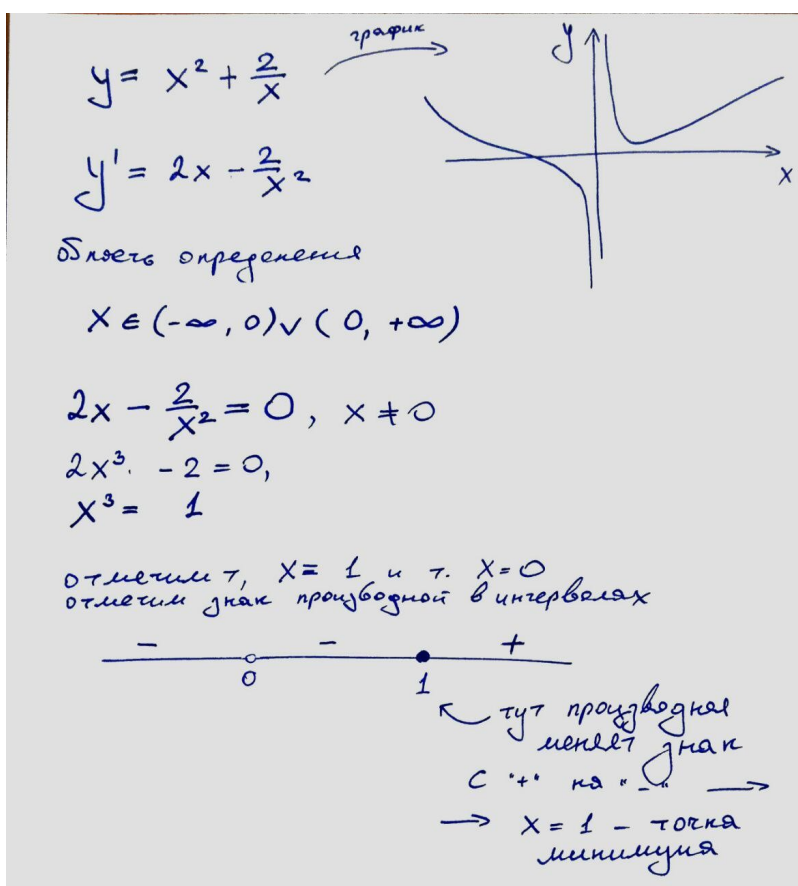 y = x² + 2/x
график
y
x
y' = 2x - 2/x²
область определения
x ∈ (-∞, 0) ∨ (0, +∞)
2x - 2/x² = 0, x ≠ 0
2x³. - 2 = 0,
x³ = 1
отметим т, x = 1 и т. x = 0
отметим знак производной в интервалах
- - +
0 1
тут производная
меняет знак
с "+" на "-" →
→ x = 1 - точка
минимума